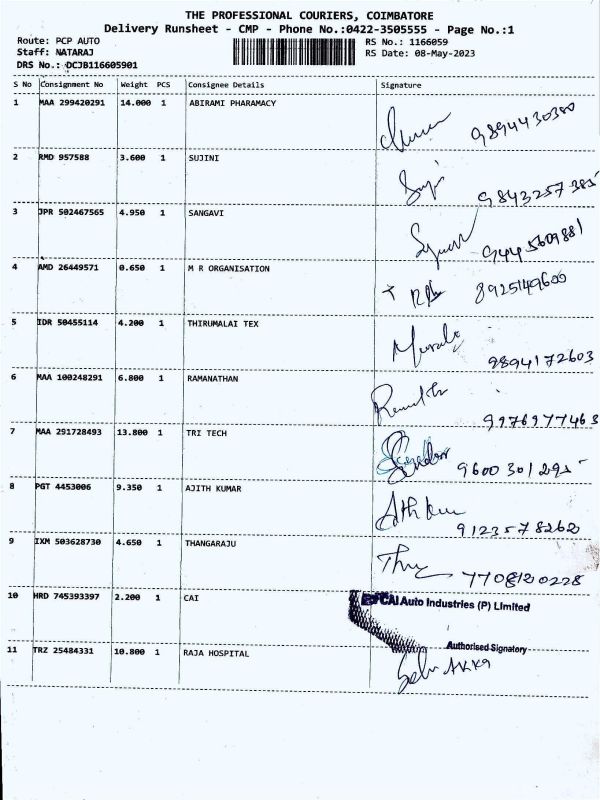 THE PROFESSIONAL COURIERS, COIMBATORE
Delivery Runsheet - CMP - Phone No.:0422-3505555 - Page No.:1
Route: PCP AUTO RS No.: 1166059
Staff: NATARAJ RS Date: 08-May-2023
DRS No.: DCJB116605901
S No Consignment No Weight PCS Consignee Details Signature
1 MAA 299420291 14.000 1 ABIRAMI PHARAMACY
9894430380
2 RMD 957588 3.600 1 SUJINI
9843257385
3 JPR 502467565 4.950 1 SANGAVI
9445609881
4 AMD 26449571 0.650 1 M R ORGANISATION
8925149600
5 IDR 50455114 4.200 1 THIRUMALAI TEX
9894172603
6 MAA 100248291 6.800 1 RAMANATHAN
9976977463
7 MAA 291728493 13.800 1 TRI TECH
9600301295
8 PGT 4453006 9.350 1 AJITH KUMAR
9123578262
9 IXM 503628730 4.650 1 THANGARAJU
7708120228
10 HRD 745393397 2.200 1 CAI
CAI Auto Industries (P) Limited
Authorised Signatory
11 TRZ 25484331 10.800 1 RAJA HOSPITAL